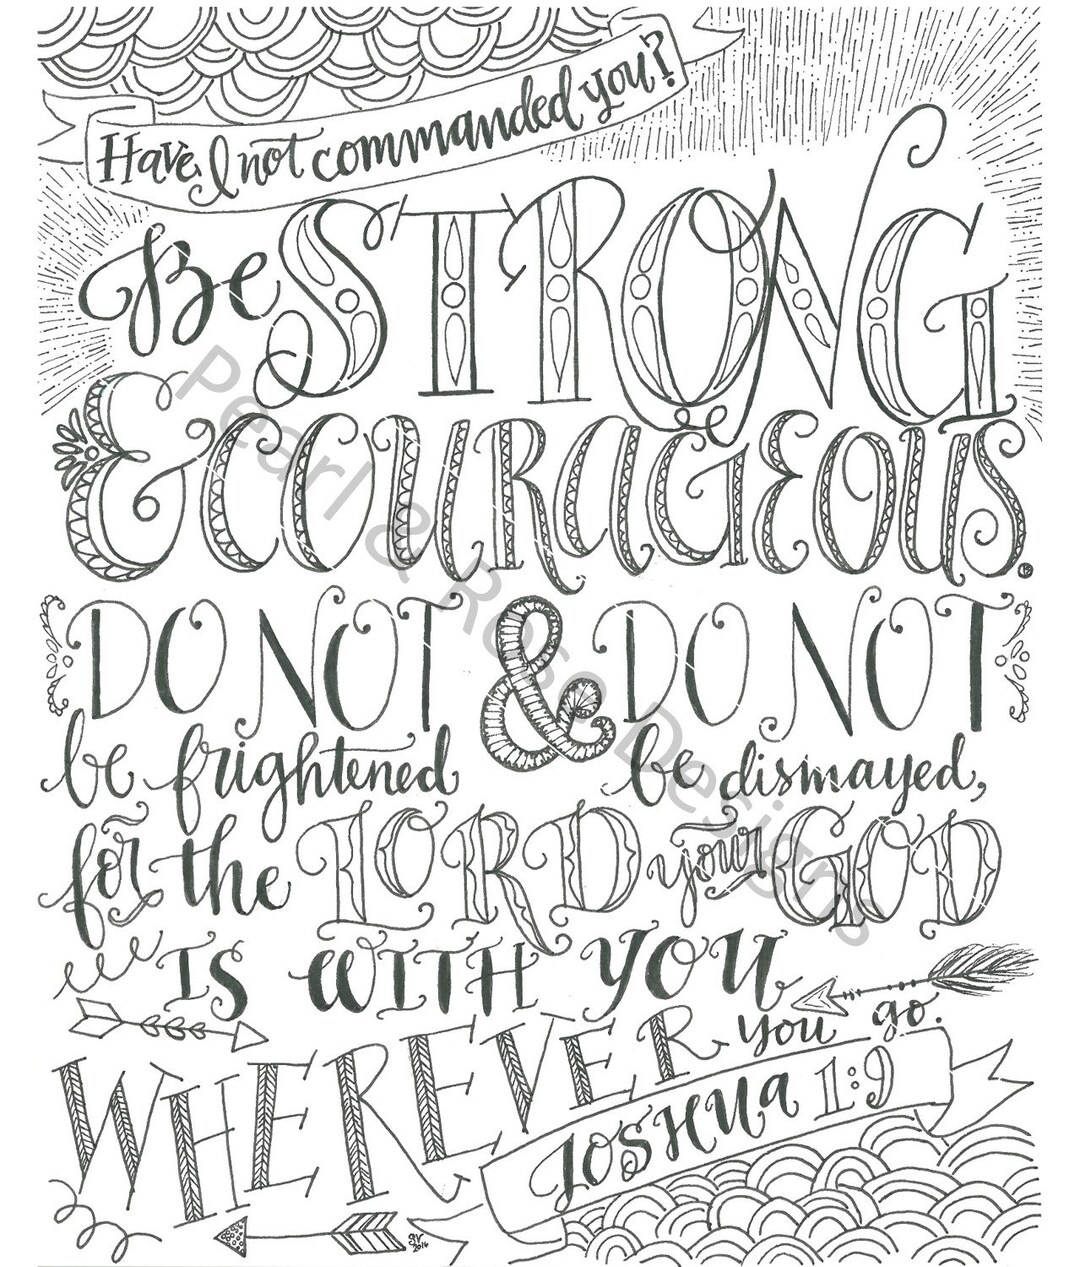 Have I not commanded you?
Be STRONG
& COURAGEOUS.
DO NOT & DO NOT
be frightened be dismayed,
for the LORD your GOD
IS WITH YOU
WHEREVER you go.
JOSHUA 1:9
SV
2016
Pearl & Rose Designs